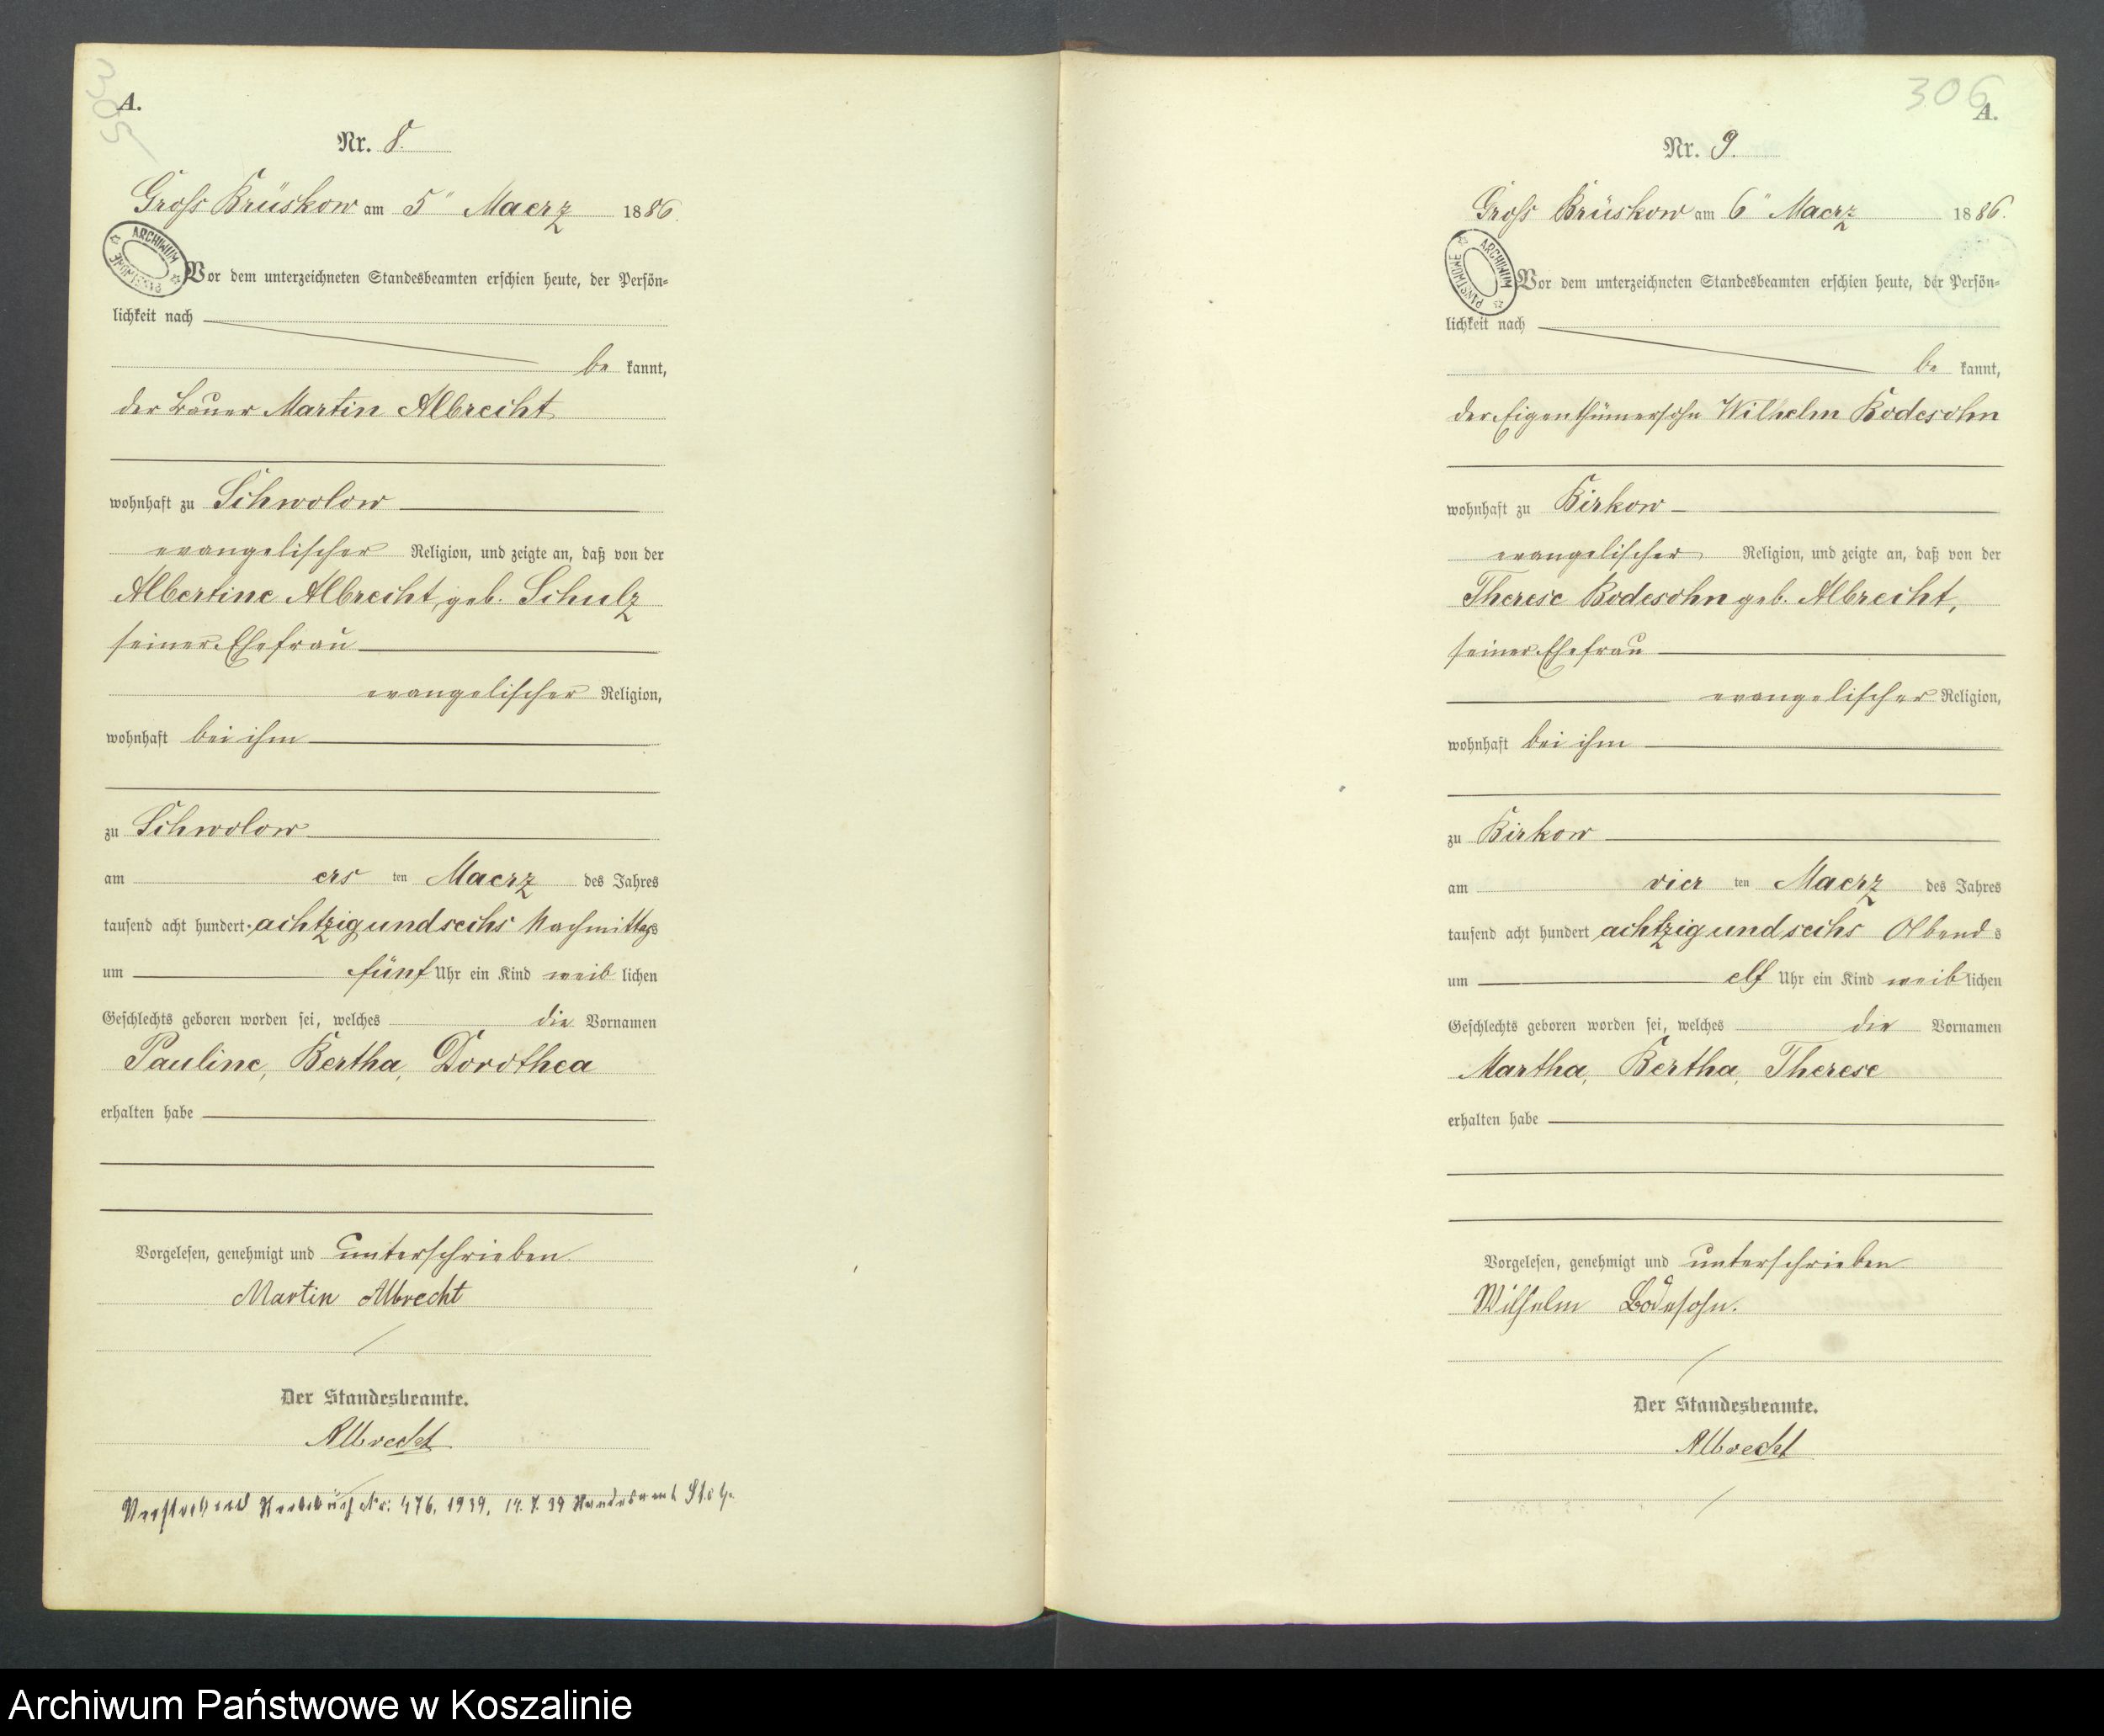 305
A.
Nr. 8.
Gross Brüskow am 5" Maerz 1886.
ARCHIWUM PAŃSTWOWE
Vor dem unterzeichneten Standesbeamten erschien heute, der Persön-
lichkeit nach
be kannt,
der Bauer Martin Albrecht
wohnhaft zu Schwolow
evangelischer Religion, und zeigte an, daß von der
Albertine Albrecht, geb. Schulz
seiner Ehefrau
evangelischer Religion,
wohnhaft bei ihm
zu Schwolow
am ers ten Maerz des Jahres
tausend acht hundert achtzig und sechs Nachmittags
um fünf Uhr ein Kind weib lichen
Geschlechts geboren worden sei, welches die Vornamen
Pauline, Bertha, Dorothea
erhalten habe
Vorgelesen, genehmigt und unterschrieben
Martin Albrecht
Der Standesbeamte.
Albrecht
Nr: 476, 1939, 14. 7. 39 Standesamt Stolp
306
A.
Nr. 9.
Gross Brüskow am 6" Maerz 1886.
ARCHIWUM PAŃSTWOWE
Vor dem unterzeichneten Standesbeamten erschien heute, der Persön-
lichkeit nach
be kannt,
der Eigenthümersohn Wilhelm Bodesohn
wohnhaft zu Birkow
evangelischer Religion, und zeigte an, daß von der
Therese Bodesohn geb. Albrecht,
seiner Ehefrau
evangelischer Religion,
wohnhaft bei ihm
zu Birkow
am vier ten Maerz des Jahres
tausend acht hundert achtzig und sechs Abends
um elf Uhr ein Kind weib lichen
Geschlechts geboren worden sei, welches die Vornamen
Martha, Bertha, Therese
erhalten habe
Vorgelesen, genehmigt und unterschrieben
Wilhelm Bodesohn.
Der Standesbeamte.
Albrecht
Archiwum Państwowe w Koszalinie